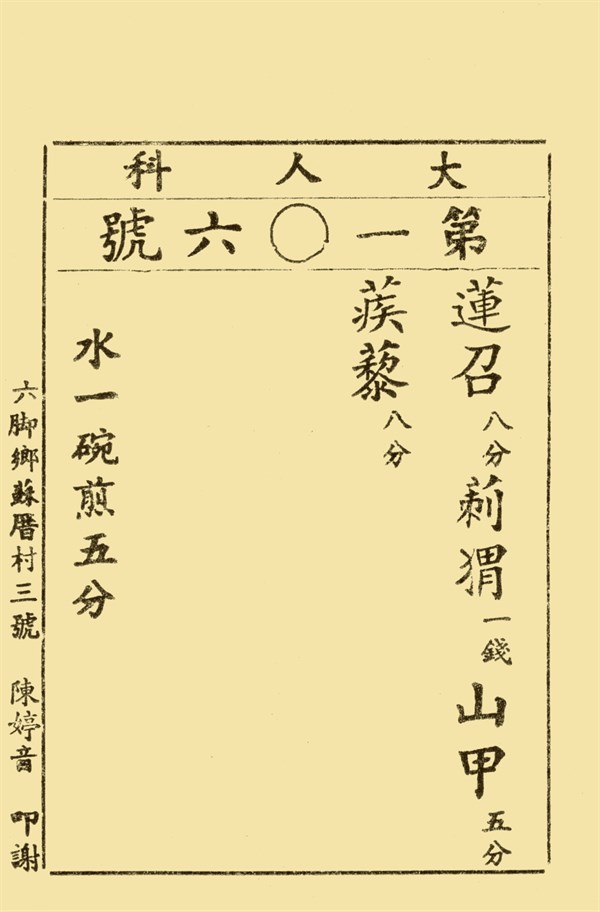 大人科
第一〇六號
蓮召八分莿猬一錢山甲五分
蒺藜八分
水一碗煎五分
六脚鄉蘇厝村三號 陳婷音 叩謝